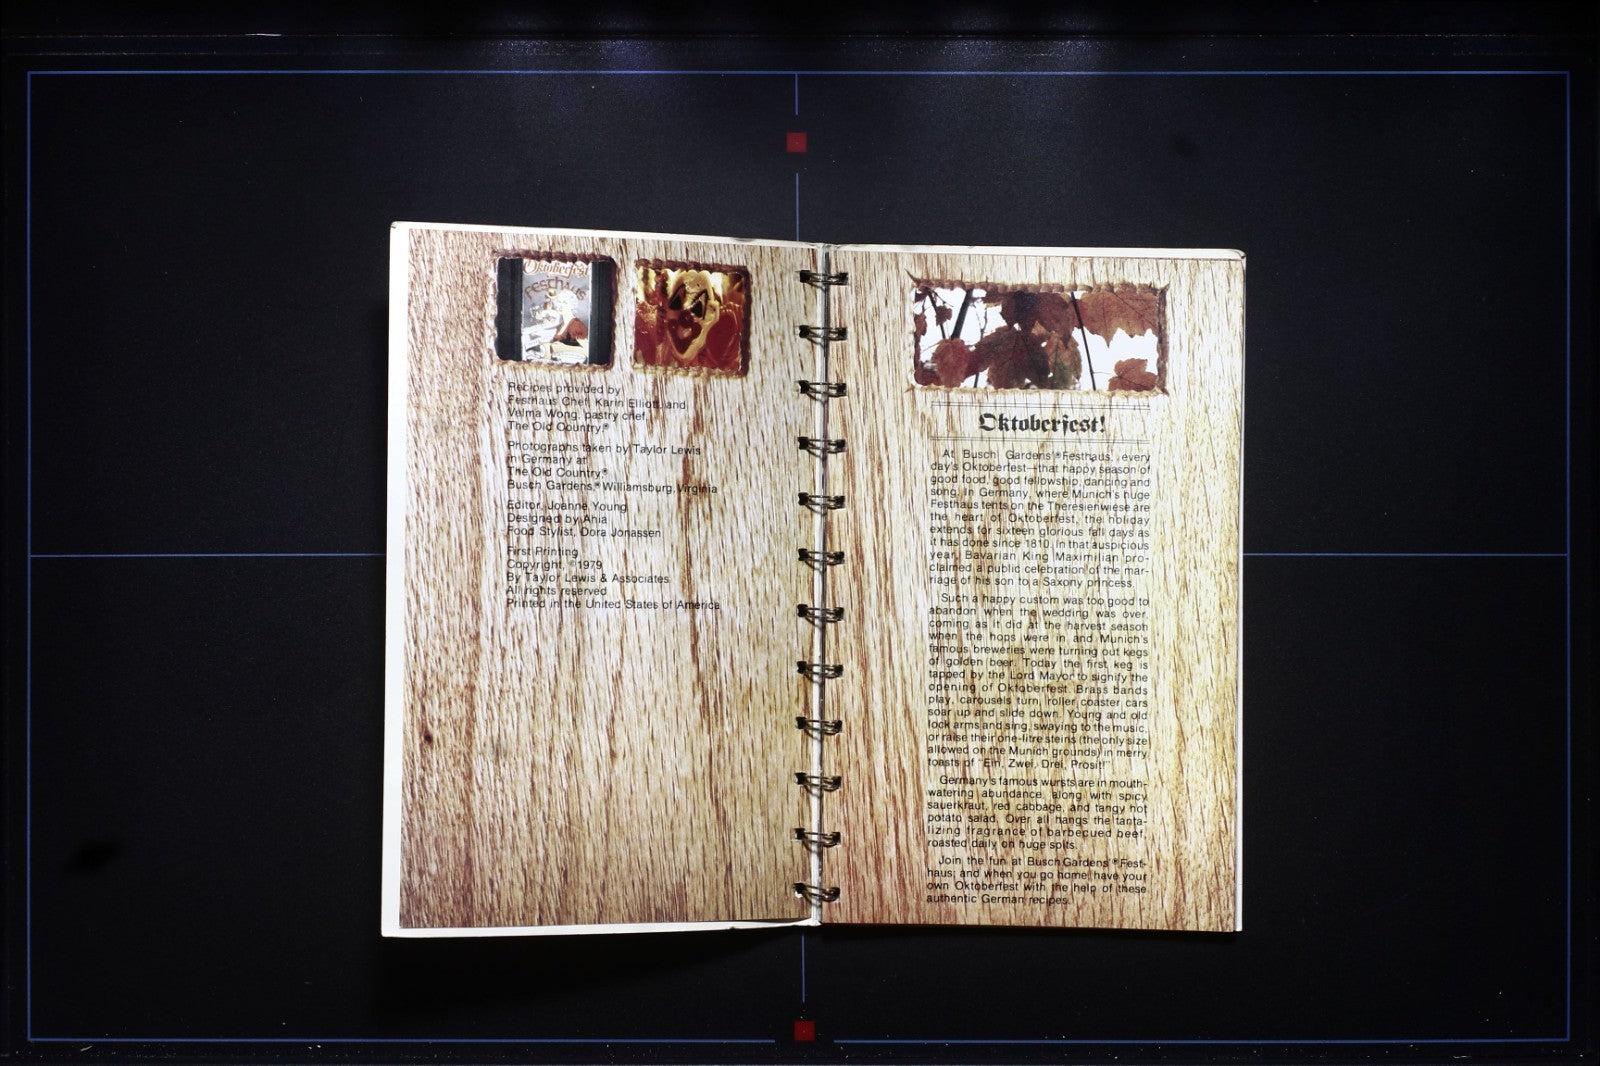 Oktoberfest
FESTHAUS
Recipes provided by
Festhaus Chef, Karin Elliott, and
Velma Wong, pastry chef,
The Old Country®
Photographs taken by Taylor Lewis
in Germany at
The Old Country®
Busch Gardens,® Williamsburg, Virginia
Editor, Joanne Young
Designed by Ania
Food Stylist, Dora Jonassen
First Printing
Copyright, ©1979
By Taylor Lewis & Associates
All rights reserved
Printed in the United States of America
Oktoberfest!
At Busch Gardens'® Festhaus, every
day's Oktoberfest—that happy season of
good food, good fellowship, dancing and
song. In Germany, where Munich's huge
Festhaus tents on the Theresienwiese are
the heart of Oktoberfest, the holiday
extends for sixteen glorious fall days as
it has done since 1810. In that auspicious
year, Bavarian King Maximilian pro-
claimed a public celebration of the mar-
riage of his son to a Saxony princess.
Such a happy custom was too good to
abandon when the wedding was over,
coming as it did at the harvest season
when the hops were in and Munich's
famous breweries were turning out kegs
of golden beer. Today the first keg is
tapped by the Lord Mayor to signify the
opening of Oktoberfest. Brass bands
play, carousels turn, roller coaster cars
soar up and slide down. Young and old
lock arms and sing, swaying to the music,
or raise their one-litre steins (the only size
allowed on the Munich grounds) in merry
toasts of "Ein, Zwei, Drei, Prosit!"
Germany's famous wursts are in mouth-
watering abundance, along with spicy
sauerkraut, red cabbage, and tangy hot
potato salad. Over all hangs the tanta-
lizing fragrance of barbecued beef,
roasted daily on huge spits.
Join the fun at Busch Gardens'® Fest-
haus; and when you go home, have your
own Oktoberfest with the help of these
authentic German recipes.